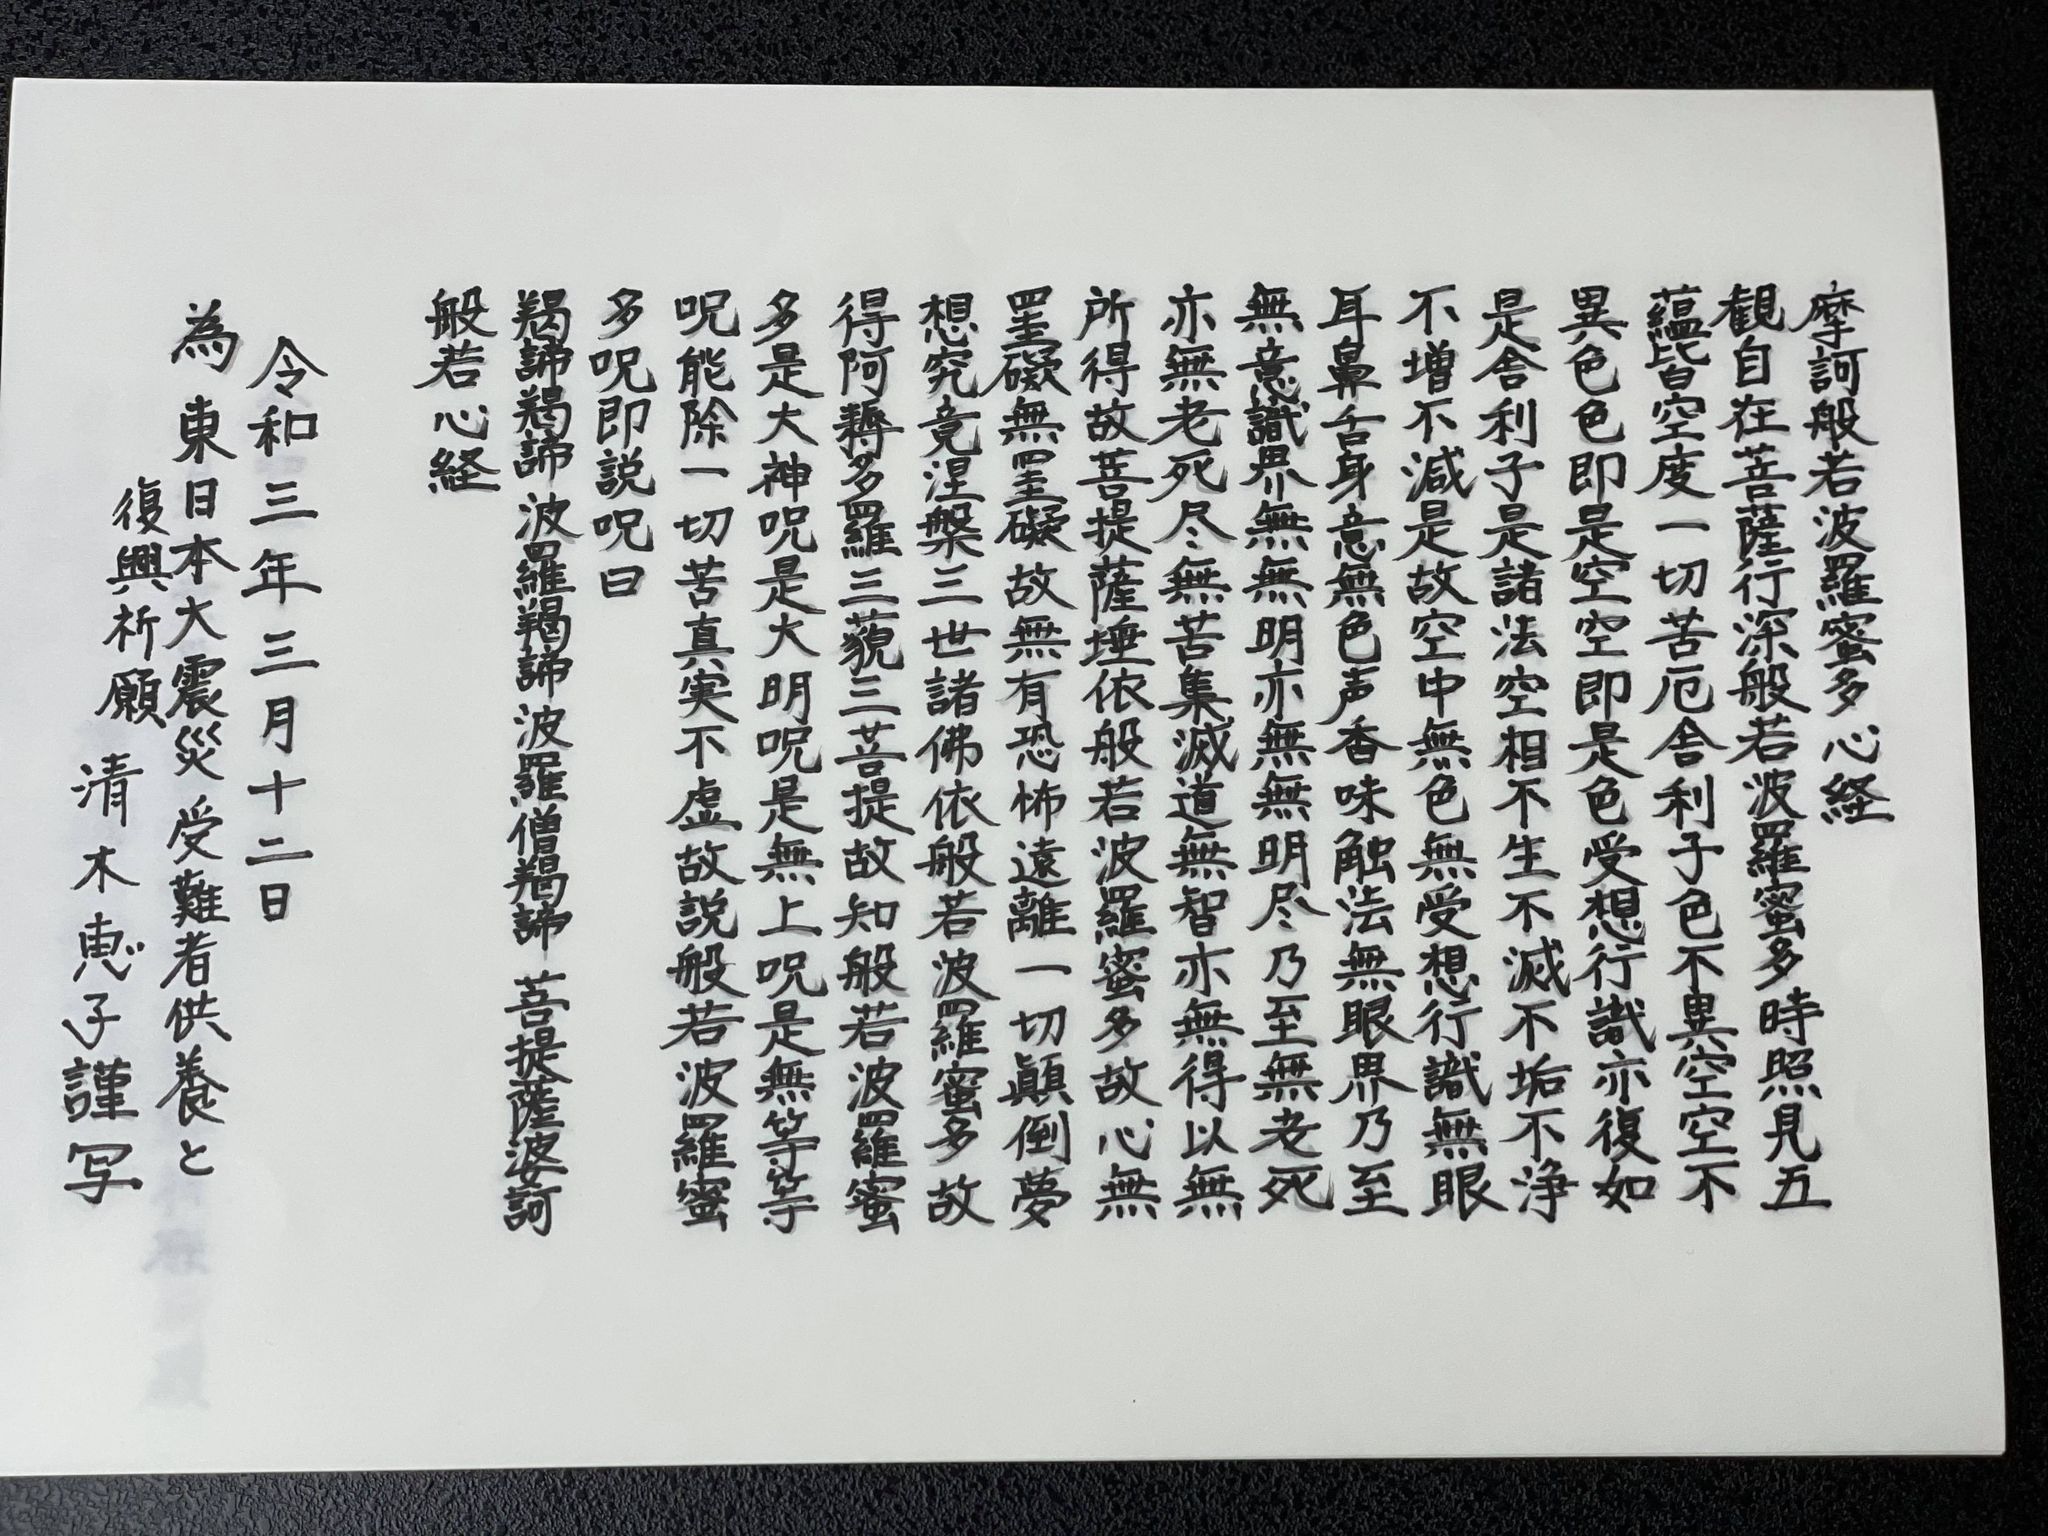 摩訶般若波羅蜜多心経
観自在菩薩行深般若波羅蜜多時照見五
蘊皆空度一切苦厄舎利子色不異空空不
異色色即是空空即是色受想行識亦復如
是舎利子是諸法空相不生不滅不垢不浄
不増不減是故空中無色無受想行識無眼
耳鼻舌身意無色声香味触法無眼界乃至
無意識界無無明亦無無明尽乃至無老死
亦無老死尽無苦集滅道無智亦無得以無
所得故菩提薩埵依般若波羅蜜多故心無
罣礙無罣礙故無有恐怖遠離一切顛倒夢
想究竟涅槃三世諸佛依般若波羅蜜多故
得阿耨多羅三藐三菩提故知般若波羅蜜
多是大神呪是大明呪是無上呪是無等等
呪能除一切苦真実不虚故説般若波羅蜜
多呪即説呪曰
羯諦羯諦波羅羯諦波羅僧羯諦菩提薩婆訶
般若心経
令和三年三月十二日
為東日本大震災受難者供養と
復興祈願
清木恵子謹写